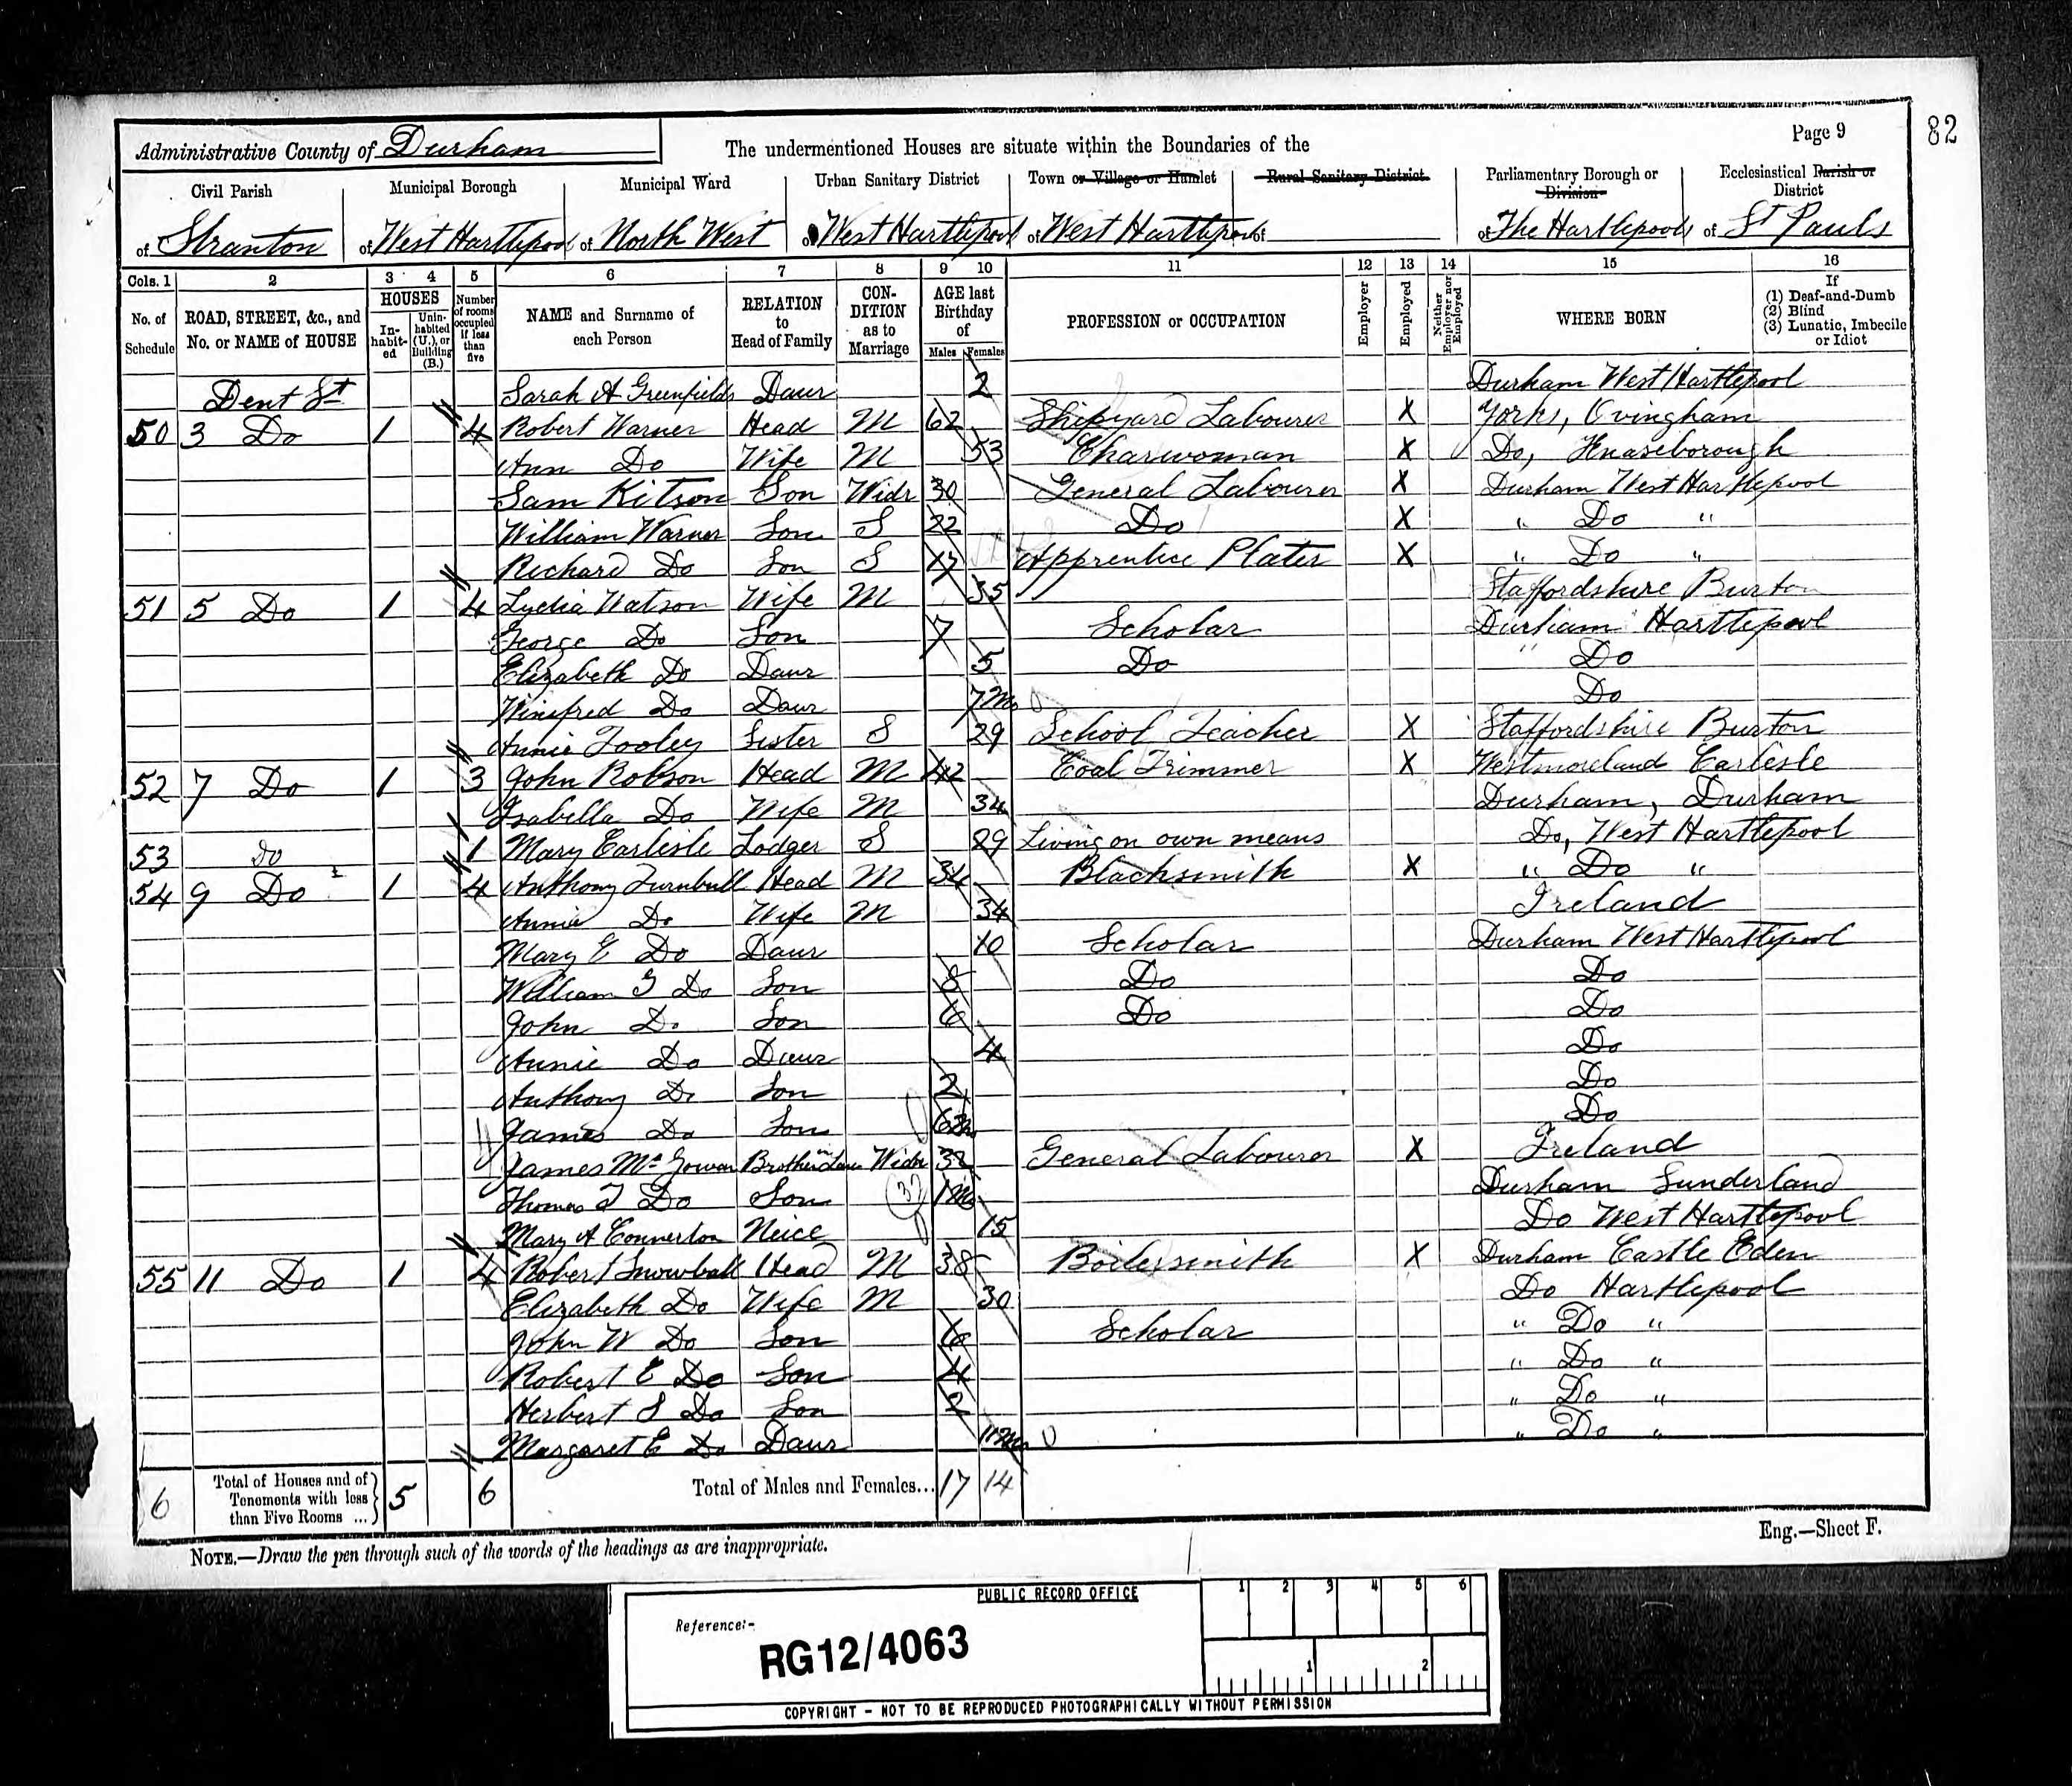 82
Administrative County of Durham The undermentioned Houses are situate within the Boundaries of the Page 9
Civil Parish Municipal Borough Municipal Ward Urban Sanitary District Town or Village or Hamlet Rural Sanitary District Parliamentary Borough or Division Ecclesiastical Parish or District
of Stranton of West Hartlepool of North West of West Hartlepool of West Hartlepool of of The Hartlepools of St Pauls
Cols. 1 2 3 4 5 6 7 8 9 10 11 12 13 14 15 16
No. of Schedule ROAD, STREET, &c., and No. or NAME of HOUSE HOUSES In-habit-ed Unin-habited (U.), or Building (B.) Number of rooms occupied if less than five NAME and Surname of each Person RELATION to Head of Family CON-DITION as to Marriage AGE last Birthday of Males Females PROFESSION or OCCUPATION Employer Employed Neither Employer nor Employed WHERE BORN If (1) Deaf-and-Dumb (2) Blind (3) Lunatic, Imbecile or Idiot
Dent St Sarah A Greenfields Daur 2 Durham West Hartlepool
50 3 Do 1 4 Robert Warner Head M 62 Shipyard Labourer X Yorks, Ovingham
Ann Do Wife M 53 Charwoman X Do, Knaseborough
Sam Kitson Son Widr 30 General Labourer X Durham West Hartlepool
William Warner Son S 22 Do X " Do "
Richard Do Son S 17 Apprentice Plater X " Do "
51 5 Do 1 4 Lydia Watson Wife M 35 Staffordshire Burton
George Do Son 7 Scholar Durham Hartlepool
Elizabeth Do Daur 5 Do " Do
Winifred Do Daur 7 Mo Do
Annie Tooley Sister S 29 School Teacher X Staffordshire Burton
52 7 Do 1 3 John Robson Head M 42 Coal Trimmer X Westmoreland Carlisle
Isabella Do Wife M 34 Durham, Durham
53 Do 1 Mary Carlisle Lodger S 29 Living on own means Do, West Hartlepool
54 9 Do 1 4 Anthony Turnbull Head M 34 Blacksmith X " Do "
Annie Do Wife M 34 Ireland
Mary E Do Daur 10 Scholar Durham West Hartlepool
William G Do Son 8 Do Do
John Do Son 6 Do Do
Annie Do Daur 4 Do
Anthony Do Son 2 Do
James Do Son Do
James Mc Gowan Brother in Law Widr 32 General Labourer X Ireland
Thomas J Do Son 1 Mo Durham Sunderland
Mary A Connerton Neice 15 Do West Hartlepool
55 11 Do 1 4 Robert Snowball Head M 38 Boilersmith X Durham Castle Eden
Elizabeth Do Wife M 30 Do Hartlepool
John W Do Son 6 Scholar " Do "
Robert E Do Son 4 " Do "
Herbert S Do Son 2 " Do "
Margaret E Do Daur 11 Mo " Do "
6 Total of Houses and of Tenements with less than Five Rooms ... 5 6 Total of Males and Females... 17 14
NOTE.—Draw the pen through such of the words of the headings as are inappropriate.
Eng.—Sheet F.
PUBLIC RECORD OFFICE
Reference:-
RG12/4063
1 2 3 4 5 6
1 2
COPYRIGHT - NOT TO BE REPRODUCED PHOTOGRAPHICALLY WITHOUT PERMISSION